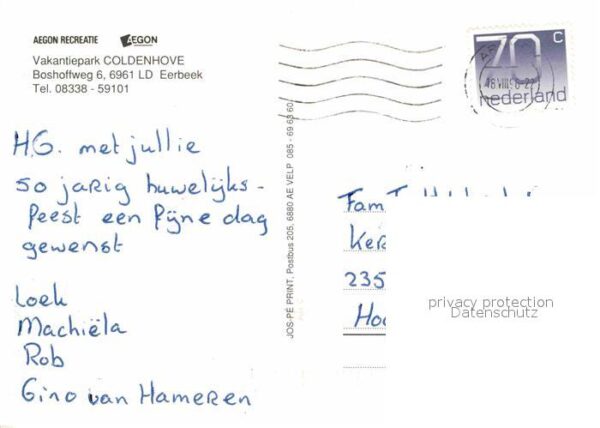 AEGON RECREATIE AEGON
Vakantiepark COLDENHOVE
Boshoffweg 6, 6961 LD Eerbeek
Tel. 08338 - 59101
70 c
nederland
H.G. met jullie
50 jarig huwelijks-
feest een fijne dag
gewenst
Loek
Machiëla
Rob
Gino van Hameren
JOS-PÉ PRINT, Postbus 205, 6880 AE VELP 085 - 69 63 60
Fam
Ker
235
Hoo
privacy protection
Datenschutz